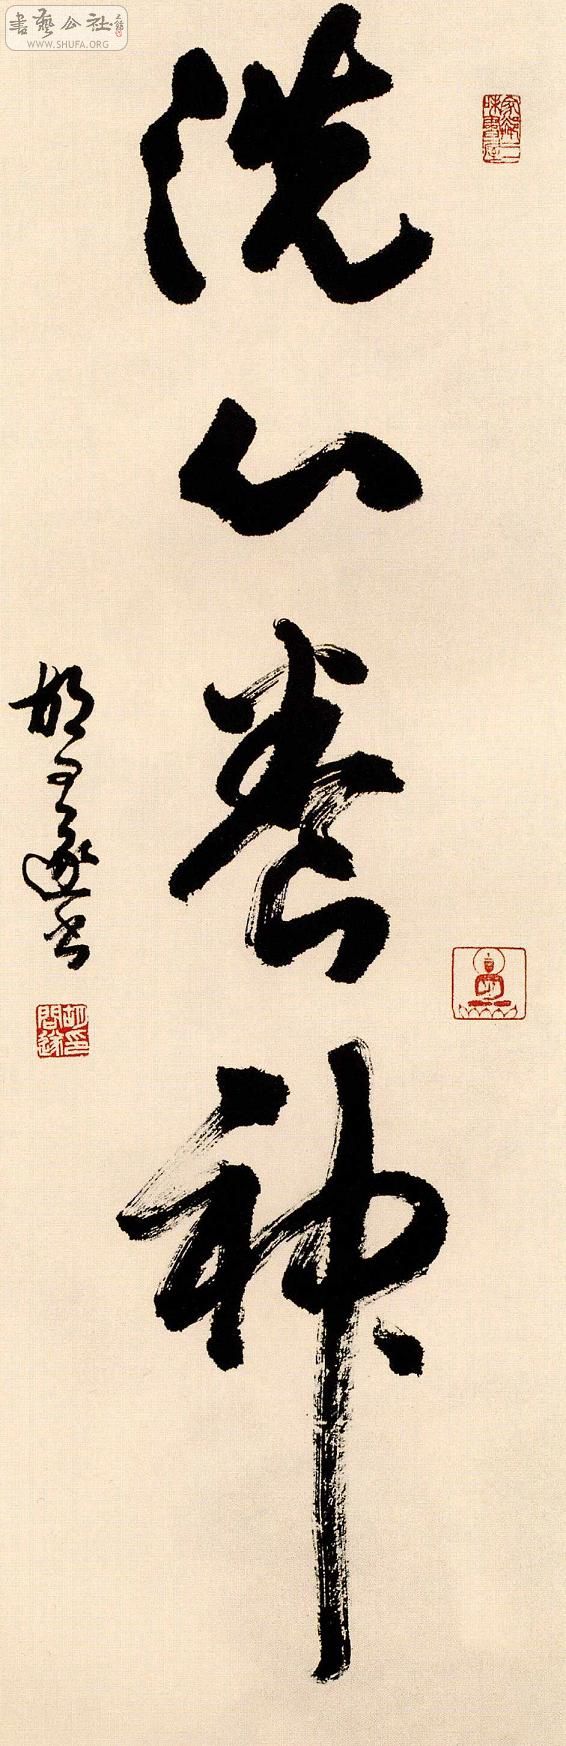 書藝公社
WWW.SHUFA.ORG
洗心養神
胡問遂書